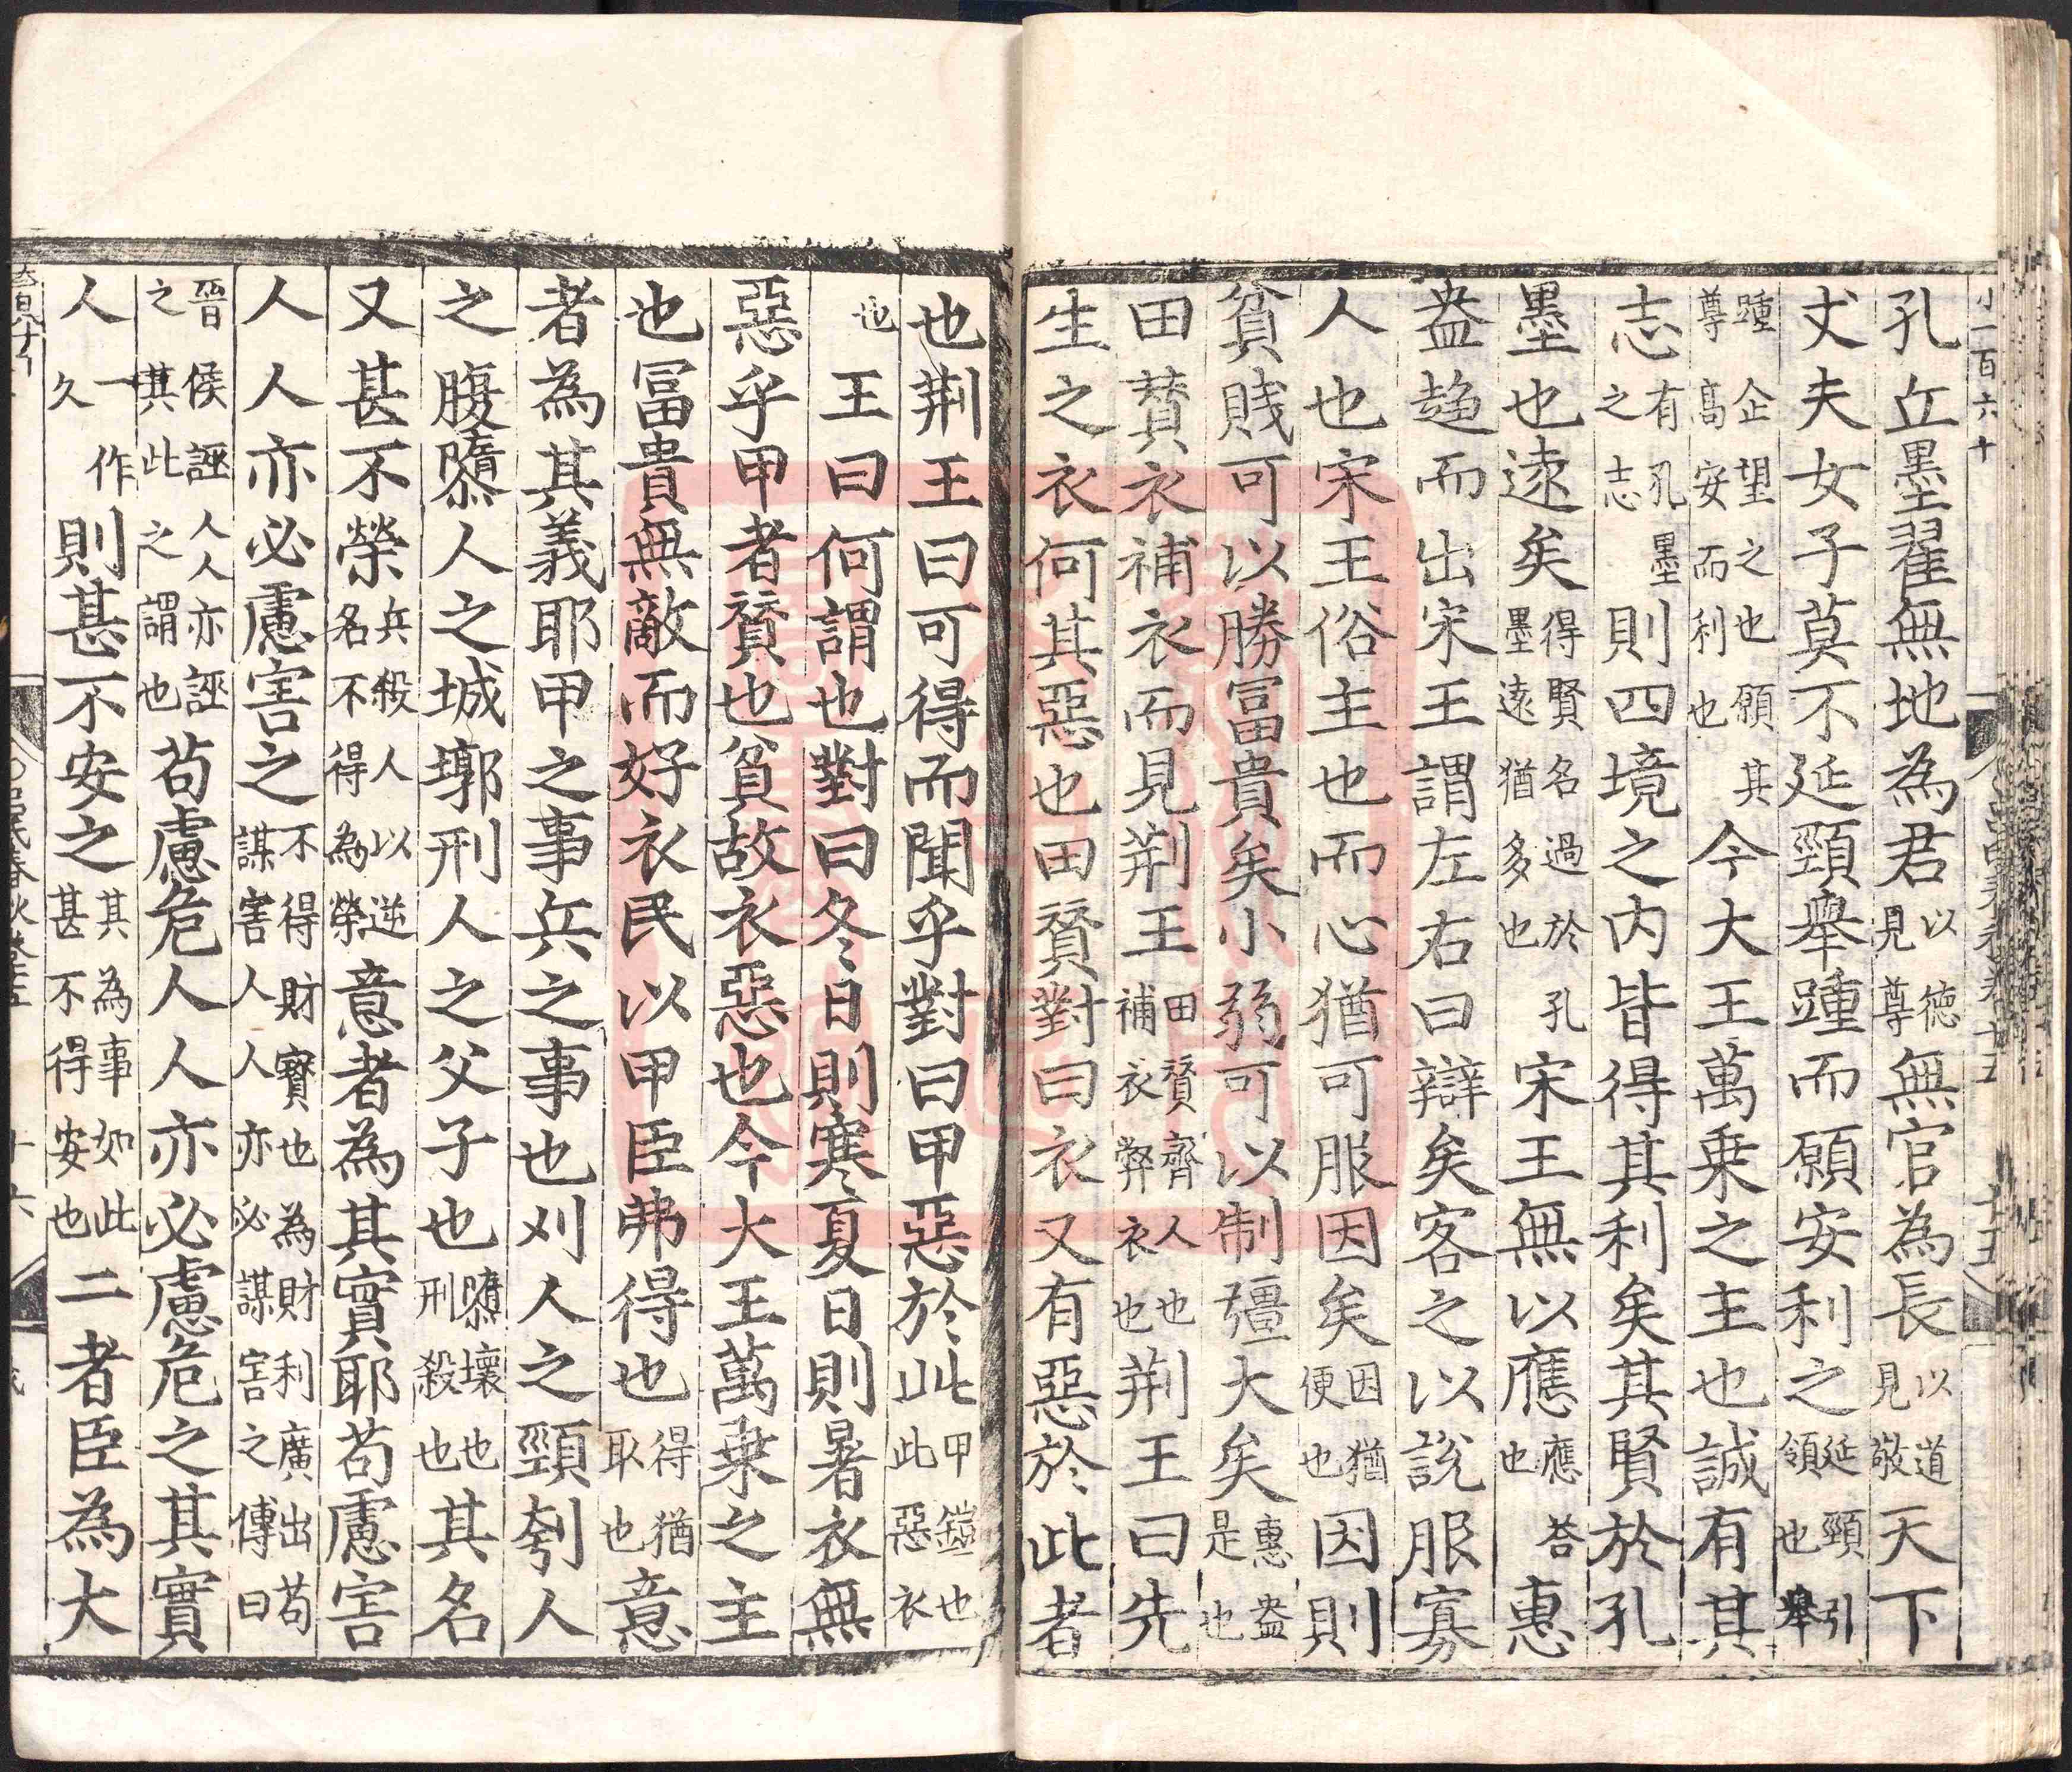 孔丘墨翟無地為君以德見尊無官為長以道見敬天下
丈夫女子莫不延頸舉踵而願安利之延頸引領也舉
踵企望之也願其尊高安而利也今大王萬乗之主也誠有其
志有孔墨之志則四境之内皆得其利矣其賢於孔
墨也遠矣得賢名過於孔墨遠猶多也宋王無以應應荅也惠
盎趋而出宋王謂左右曰辯矣客之以說服寡
人也宋王俗主也而心猶可服因矣因猶便也因則
貧賤可以勝冨貴矣小弱可以制彊大矣惠盎是也
田賛衣補衣而見荆王田賛齊人也補衣弊衣也荆王曰先
生之衣何其惡也田賛對曰衣又有惡於此者
也荆王曰可得而聞乎對曰甲惡於此甲鎧也此惡衣
也王曰何謂也對曰冬日則寒夏日則暑衣無
惡乎甲者賛也貧故衣惡也今大王萬乗之主
也冨貴無敵而好衣民以甲臣弗得也得猶取也意
者為其義耶甲之事兵之事也刈人之頸刳人
之腹隳人之城墎刑人之父子也隳壞也刑殺也其名
又甚不榮兵殺人以逆名不得為榮意者為其實耶苟慮害
人人亦必慮害之不得財寳也為財利廣出苟謀害人人亦必謀害之傳曰
晉侯誣人人亦誣之其此之謂也苟慮危人人亦必慮危之其實
人一作久則甚不安之其為事如此甚不得安也二者臣為大